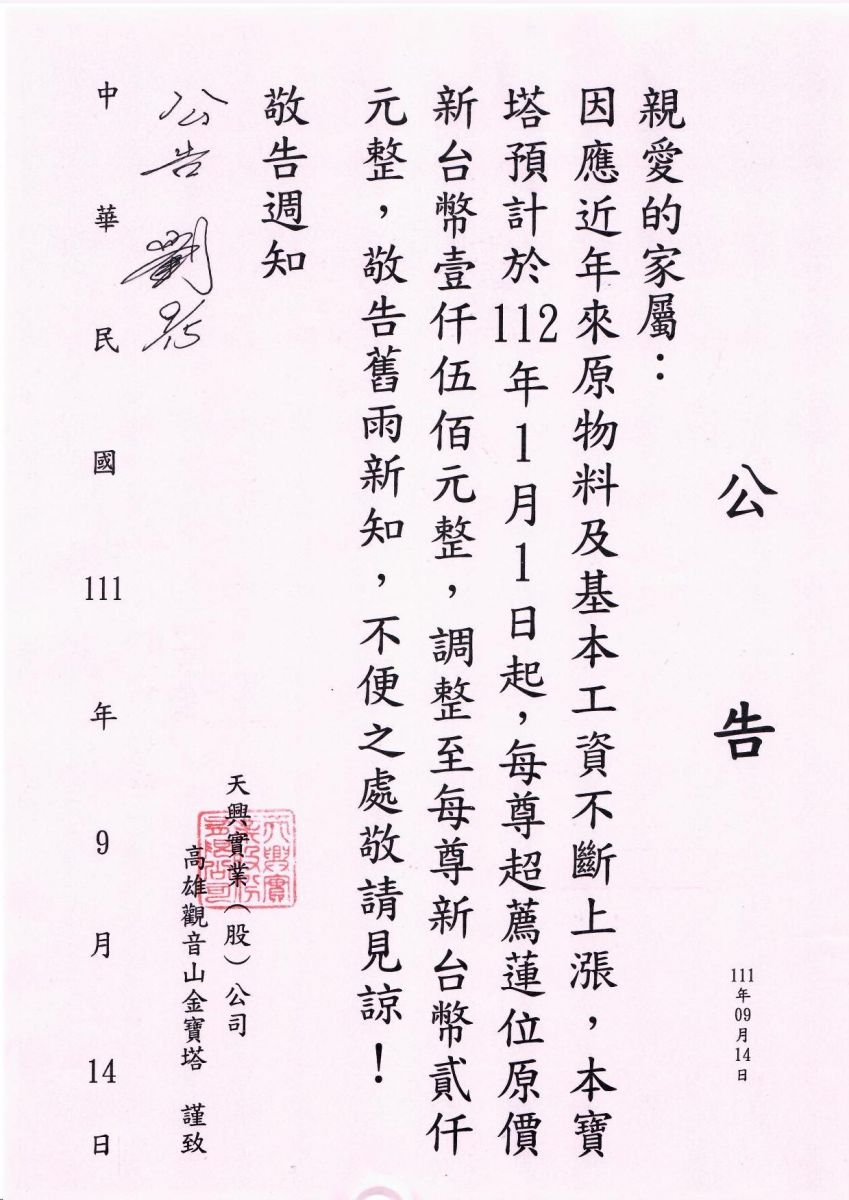 公告
111年09月14日
親愛的家屬：
因應近年來原物料及基本工資不斷上漲，本寶
塔預計於112年1月1日起，每尊超薦蓮位原價
新台幣壹仟伍佰元整，調整至每尊新台幣貳仟
元整，敬告舊雨新知，不便之處敬請見諒！
敬告週知
天興實業（股）公司
高雄觀音山金寶塔 謹致
公告 劉 9/15
中華民國111年9月14日